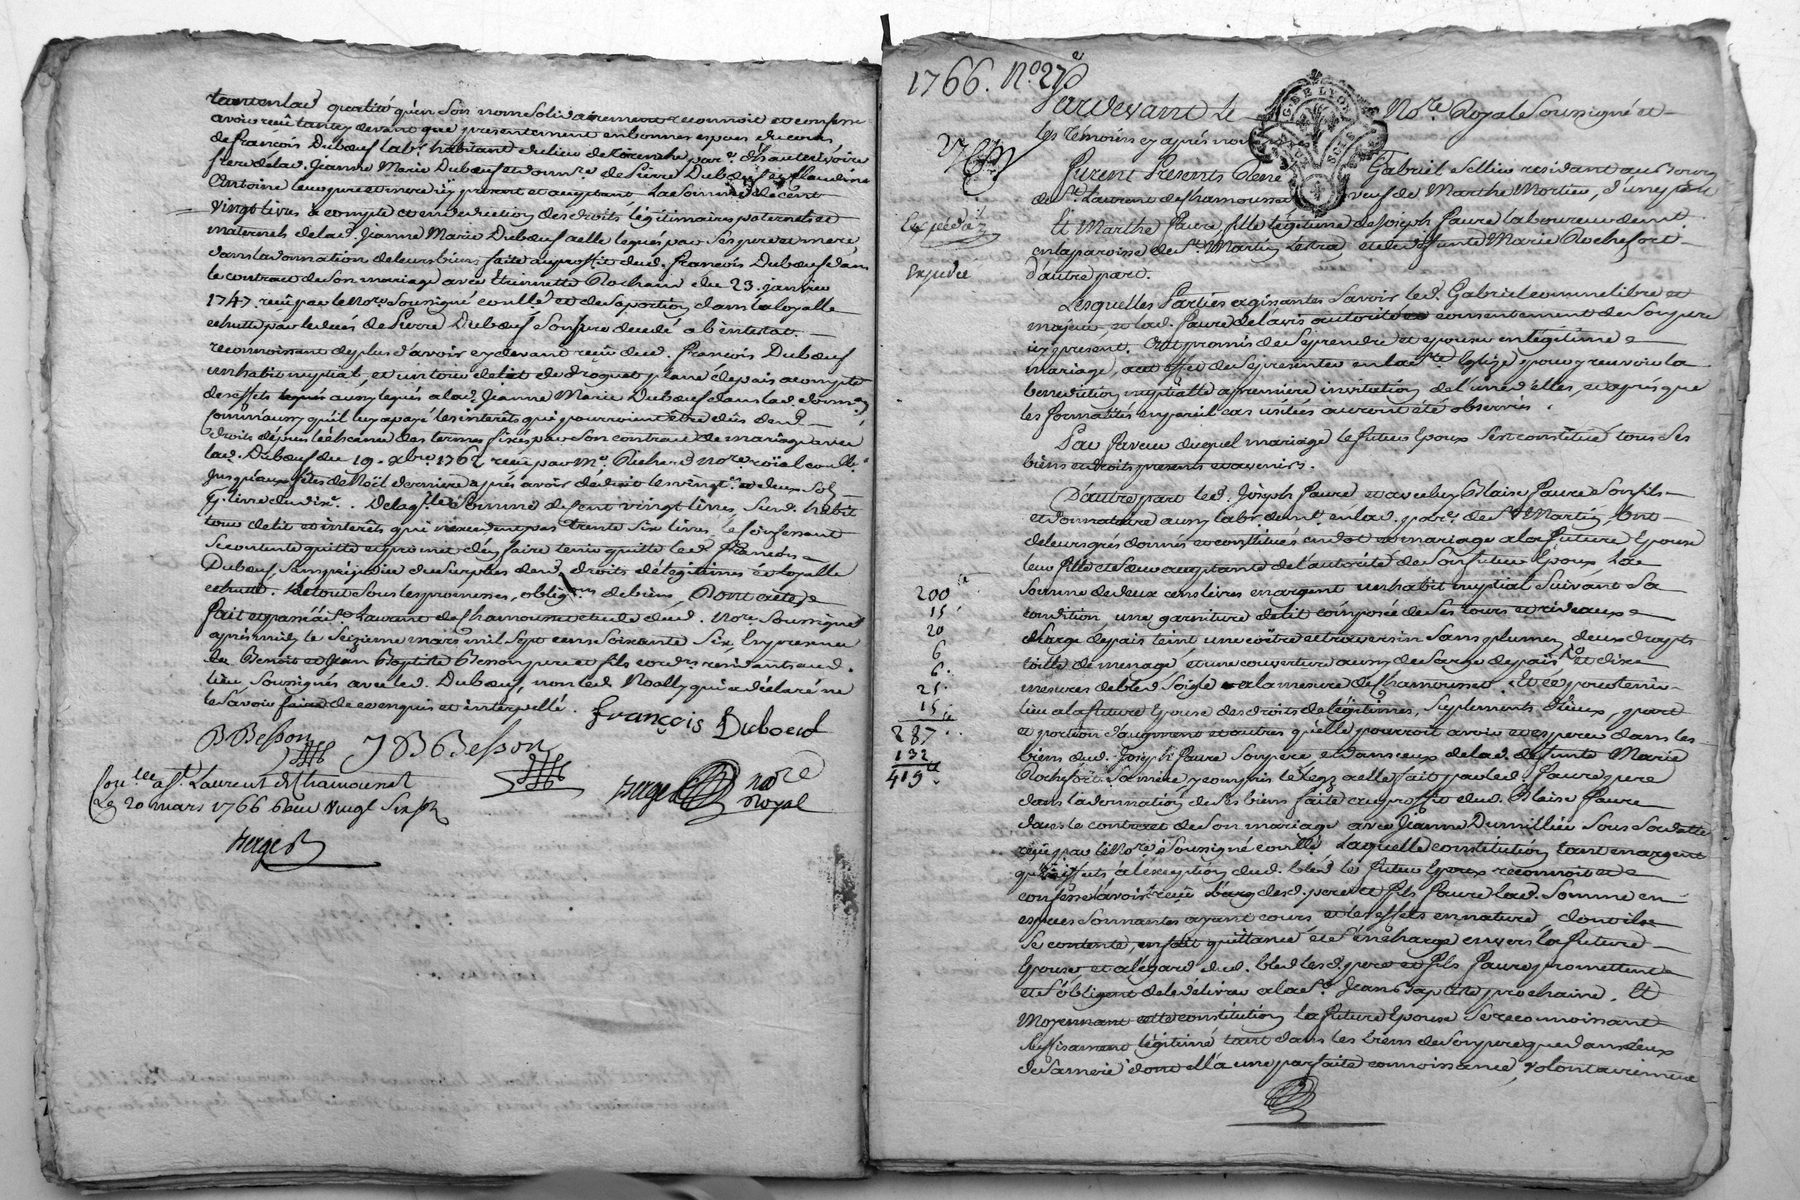 tant en lad. qualité qu'en son nom solidairement reconnoit et confesse
avoir reçu tant cy devant que presentement en bonnes especes du cours
de françois Duboeuf labr. habitant du lieu de par. d'hauterivoire
frere de lad. Jeanne Marie Duboeuf et donnre. de Pierre Duboeuf et Claudine
Antoine leurs pere et mere icy present et acceptant la somme de cent
vingt livres a compte et en deduction des droits légitimaires paternels et
maternels de lad. Jeanne Marie Duboeuf a elle legués par ses pere et mere
dans la donnation de leurs biens faite au proffit dud. françois Duboeuf dans
le contract de son mariage avec Etiennette Rochain du 23. janvier
1747. reçu par le Nore. soussigné conllé et de sa portion dans la loyalle
echutte par le deces de Pierre Duboeuf son frere decedé ab intestat.
reconnoissant de plus d'avoir cy devant reçu dud. françois Duboeuf
un habit nuptial, et un tour de lit de droguet plané depuis a compte
des effets legués aussy legués a lad. Jeanne Marie Duboeuf dans lad. donnaon
comm'aussy qu'il luy a payé les interets qui pourroient etre dus desd.
droits depuis l'écheance des termes fixés par son contract de mariage avec
lad. Duboeuf du 19. xbre. 1762 reçu par Me. Richard nore. roïal conllé
jusqu'aux fêtes de Noël derniere après avoir deduit les vingt. et deux sols
p. livre du dixe. De laqlle. somme de cent vingt livres, susd. habit
tour de lit et interêts qui n'excedent pas trente six livres, le confessant
se contente quitte et promet d'en faire tenir quitte led. françois
Duboeuf, sans prejudice du surplus desd. droits de légitimes et loyalle
echutte. Le tout sous les promesses, obligons. de biens, Dont acte,
fait et passé à St. Laurent de Chamousset etude dud. Nore. soussigné
après midy le seizieme mars mil sept cens soixante six, En presence
de Benoît et Jean Baptiste Besson pere et fils cordrs. residants aud.
lieu, soussignés avec led. Duboeuf, non led. Noally qui a déclaré ne
le savoir faire de ce enquis et interpellé.
françois Duboeuf
B Besson J B Besson
Berger nore Royal
Conllé a St. Laurent de Chamousset
Le 20 mars 1766 Reçu vingt six s
Berger
1766. No 27e
Pardevant le Nore. Royal Soussigné et
les témoins cy après nommés
Furent Presents Gabriel Sellier residant au Bourg
de St. Laurent de Chamousset veuf de Marthe Mortier, d'une part
Et Marthe Faure fille légitime de Joseph Faure laboureur demt.
en la paroisse de St. Martin Lestra et de deffunte Marie Rochefort
d'autre part.
Expédié
Lesquelles Parties agissantes savoir led. Gabriel comme libre et
majeur et lad. Faure de l'avis autorité et consentement de son pere
icy présent. Ont promis de se prendre et epouser en légitime
mariage, a cet effet de se presenter en la Ste. Eglize pour y recevoir la
benediction nuptialle a premiere invitation de l'une d'elles, et apres que
les formalités en pareil cas usitées auront été observées.
Par faveur duquel mariage le futur Epoux s'est constitué tous ses
biens et droits presents et avenirs.
D'autre part led. Joseph Faure et avec luy Blaise Faure son fils
et donnataire aussy labr. demt. en lad. parre. de St. Martin, Ont
de leurs grés donnés et constitués en dot et mariage a la future Epouse
leur fille et soeur acceptante de l'autorité de son futur Epoux La
somme de deux cens livres en argent un habit nuptial suivant sa
condition une garniture de lit composée de ses tours et rideaux
de sarge depais teint une coëtre et traversin sans plumes, deux draps
toille de menage et une couverture aussy de sarge depais et dix
mesures de bled seigle a la mesure de Chamousset. Et ce pour tenir
lieu a la future Epouse des droits de légitimes, suplements d'iceux, part
et portion d'augment et autres qu'elle pourroit avoir et esperer dans les
biens dud. Joseph Faure son pere, et dans ceux de lad. deffunte Marie
Rochefort sa mere y compris le legs a elle fait par led. Faure pere
dans la donnation de ses biens faite au proffit dud. Blaise Faure
dans le contract de son mariage avec Jeanne Dumillier sous sa datte
reçu par le Nore. soussigné conllé. Laquelle constitution tant en argent
qu'en effets, a l'exception dud. bled, le futur Epoux reconnoit et
confesse avoir reçu desd. pere et fils Faure lad. somme en
especes sonnantes ayant cours et les effets en nature, dont il
se contente, en fait quittance et s'en charge envers la future
Epouse, et a l'égard dud. bled lesd. pere et fils Faure promettent
et s'obligent de le délivrer a la St. Jean Baptiste prochaine. Et
Moyennant cette constitution la future Epouse se reconnoissant
suffisament légitimé tant dans les biens de son pere que dans ceux
de sa mere dont ell'a une parfaite connoissance, volontairement
200
15
20
6
6
25
15
287
132
419